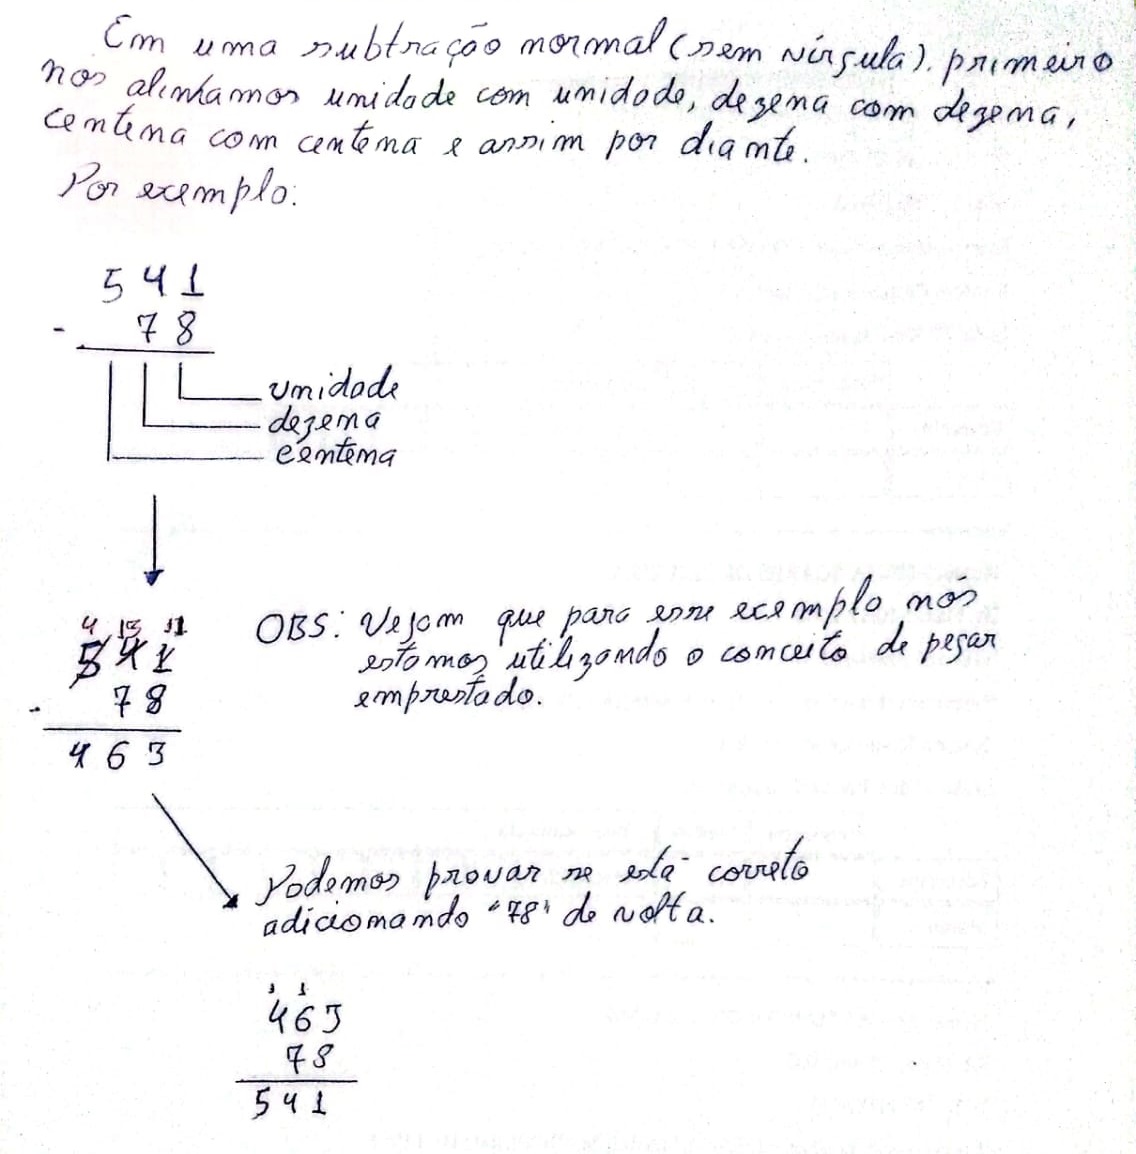 Em uma subtração normal (sem vírgula). primeiro
nos alinhamos unidade com unidade, dezena com dezena,
centena com centena e assim por diante.
Por exemplo:
541
- 78
unidade
dezena
centena
4 13 11
541
- 78
463
OBS: Vejam que para esse exemplo nós
estamos utilizando o conceito de pegar
emprestado.
Podemos provar se está correto
adicionando "78" de volta.
1 1
463
78
541